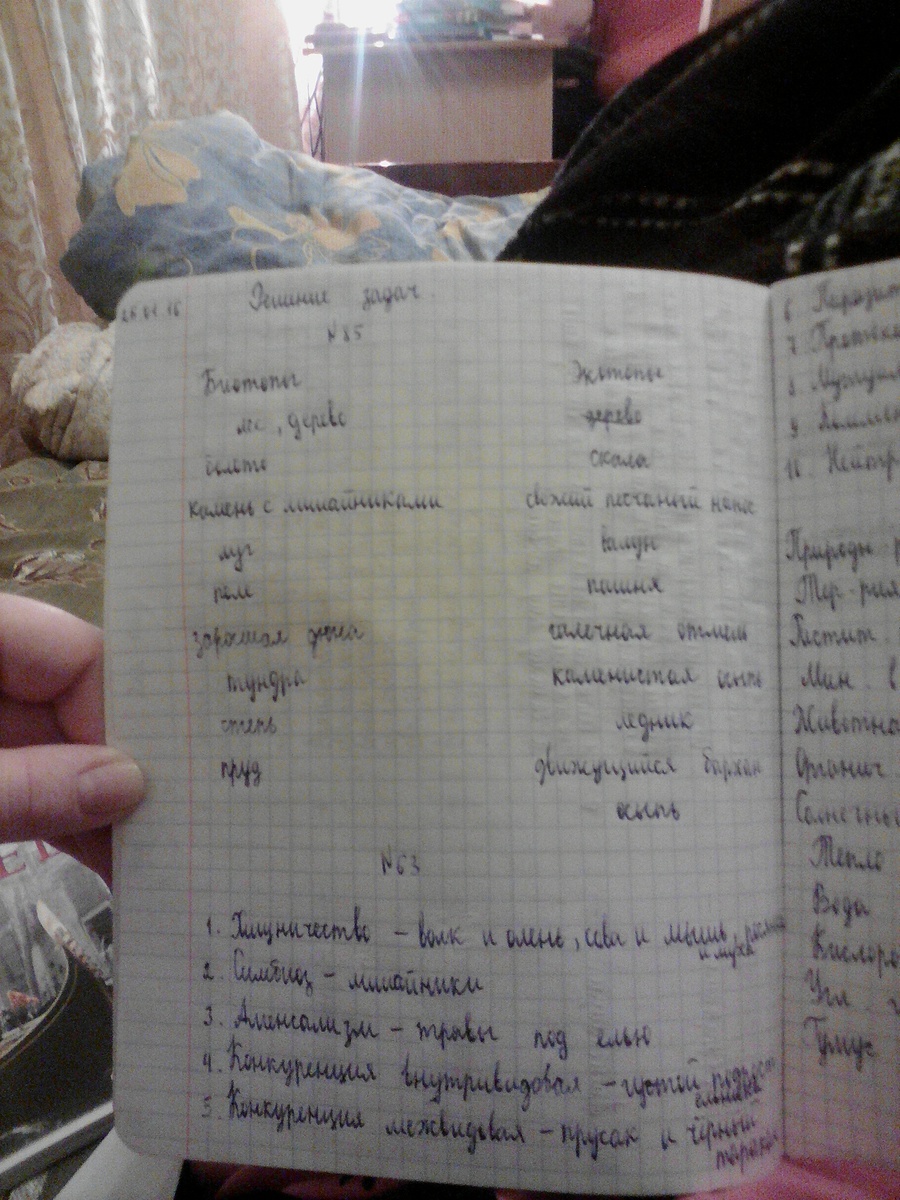 26.01.16 Решение задач.
№85
Биотопы Экотопы
лес, дерево дерево
болото скала
камень с лишайниками свежий песчаный нанос
луг валун
поле пашня
заросшая галечная отмель
тундра каменистая осыпь
степь ледник
пруд движущийся бархан
осыпь
№63
1. Хищничество – волк и олень, сова и мышь,
и муха
2. Симбиоз – лишайники
3. Аменсализм – травы под елью
4. Конкуренция внутривидовая – густой подрост
ельника
5. Конкуренция межвидовая – прусак и чёрный
таракан
6. Паразит
7. Протоко
8. Мутуали
9. Коммен
10. Нейтр
Природы
Тер-рия
Растит.
Мин. в
Животна
Органич
Солнечны
Тепло
Вода
Кислоро
Угл.
Гумус